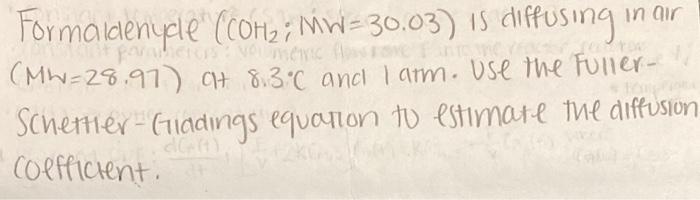 Formaldehyde (COH2; MW=30.03) is diffusing in air
(MW=28.97) at 8.3°C and 1 atm. Use the Fuller-
Schettler-Giadings equation to estimate the diffusion
coefficient.